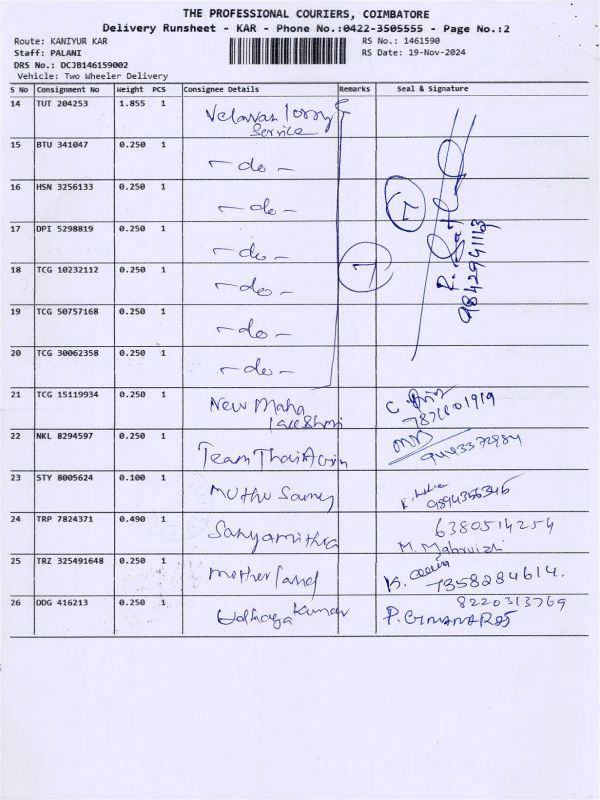 THE PROFESSIONAL COURIERS, COIMBATORE
Delivery Runsheet - KAR - Phone No.:0422-3505555 - Page No.:2
Route: KANIYUR KAR
RS No.: 1461590
Staff: PALANI
RS Date: 19-Nov-2024
DRS No.: DCJB146159002
Vehicle: Two Wheeler Delivery
S No Consignment No Weight PCS Consignee Details Remarks Seal & Signature
14 TUT 204253 1.855 1 Velavan lorry
Service
15 BTU 341047 0.250 1 - do -
16 HSN 3256133 0.250 1 - do -
17 DPI 5298819 0.250 1 - do -
18 TCG 10232112 0.250 1 - do -
19 TCG 50757168 0.250 1 - do -
20 TCG 30062358 0.250 1 - do -
7
7
9842994113
21 TCG 15119934 0.250 1 New Maha
22 NKL 8294597 0.250 1 Team
23 STY 8005624 0.100 1 Muthu Samy
24 TRP 7824371 0.490 1 6380514254
M.
25 TRZ 325491648 0.250 1 Motherland K. 7358284614.
26 DDG 416213 0.250 1 Udhaya kumar 8220313769
P.